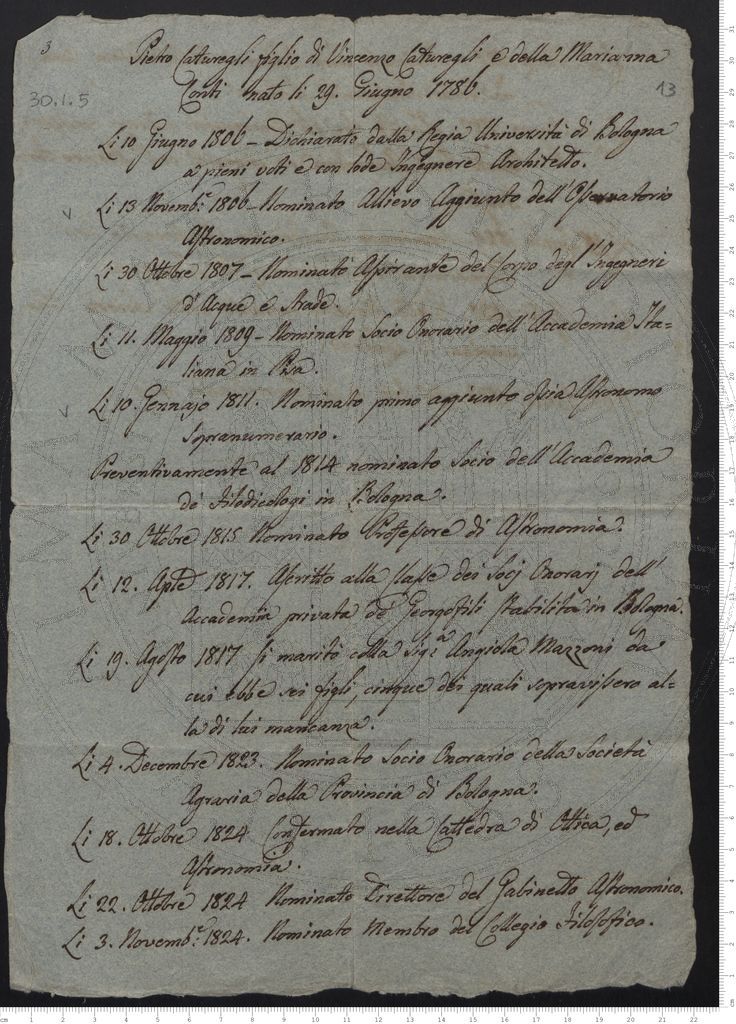 3
Pietro Caturegli figlio di Vincenzo Caturegli e della Marianna
Conti nato li 29. Giugno 1786.
30.1.5
13
Li 10 Giugno 1806 – Dichiarato dalla Regia Università di Bologna
a pieni voti e con lode Ingegnere Architetto.
Li 13 Novemb.e 1806 – Nominato Allievo Aggiunto dell'Osservatorio
Astronomico.
Li 30 Ottobre 1807 – Nominato Aspirante del Corpo degl'Ingegneri
d'Acque e Strade.
Li 11. Maggio 1809 – Nominato Socio Onorario dell'Accademia Ita-
liana in Pisa.
Li 10. Gennajo 1811. Nominato primo aggiunto ossia Astronomo
Sopranumerario.
Preventivamente al 1814 nominato Socio dell'Accademia
de' Filodicologi in Bologna.
Li 30 Ottobre 1815 Nominato Professore di Astronomia.
Li 12. 1817. Ascritto alla Classe dei Socj Onorarj dell'
Accademia privata de' Georgofili stabilita in Bologna.
Li 19. Agosto 1817 si maritò colla Sig.a Angiola Mazzoni da
cui ebbe sei figli, cinque dei quali sopravissero al-
la di lui mancanza.
Li 4. Decembre 1823. Nominato Socio Onorario della Società
Agraria della Provincia di Bologna.
Li 18. Ottobre 1824 Confermato nella Cattedra di Ottica, ed
Astronomia.
Li 22. Ottobre 1824 Nominato Direttore del Gabinetto Astronomico.
Li 3. Novemb.e 1824. Nominato Membro del Collegio Filosofico.